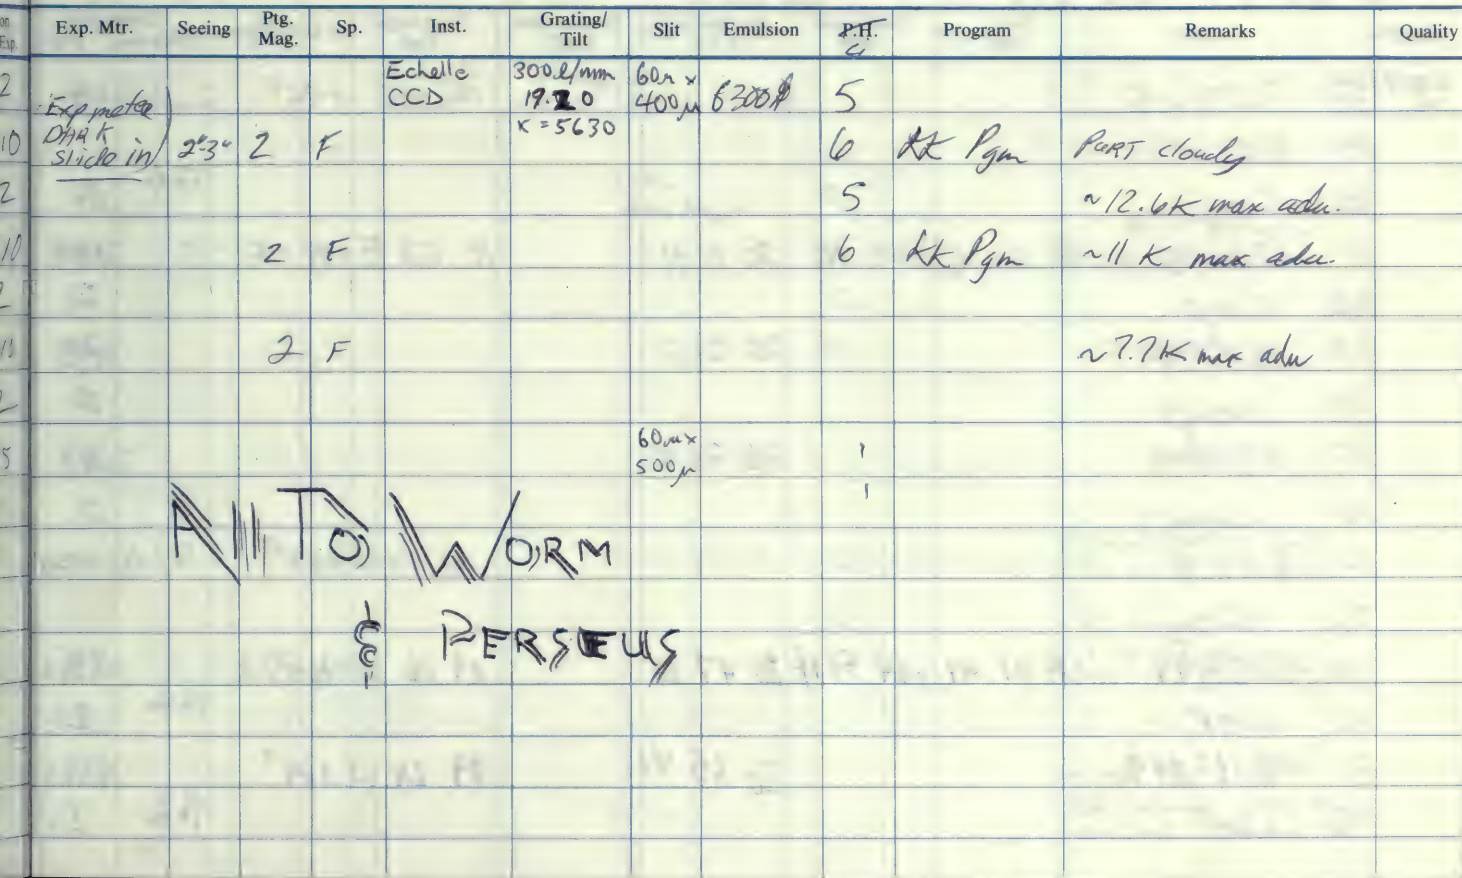 on Exp. Exp. Mtr. Seeing Ptg. Mag. Sp. Inst. Grating/ Tilt Slit Emulsion P.H. Program Remarks Quality
2 Echelle CCD 300 l/mm 19.20 x = 5630 60μ x 400μ 6300Å 5
Exp meter
DARK
slide in
10 2"-3" 2 F 6 KK Pgm PART cloudy
2 5 ~12.6K max adu.
10 2 F 6 KK Pgm ~11 K max adu.
2
10 2 F ~7.7K max adu
2
5 60μ x 500μ
WORM
& PERSEUS